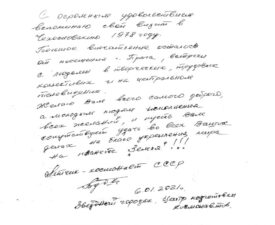 С огромным удовольствием
вспоминаю свой визит в
Чехословакию 1978 году.
впечатление осталось
от посещения г. Прага, встречи
с людьми в творческих, трудовых
коллективах и на центральном
телевидении.
Желаю Вам всего самого доброго,
исполнения
всех желаний, и пусть Вам
сопутствует удача во всех Ваших
делах на благо укрепления мира
на планете "Земля"!!!
Летчик-космонавт СССР
6.01.2021г.
Звездный городок, Центр подготовки
космонавтов.